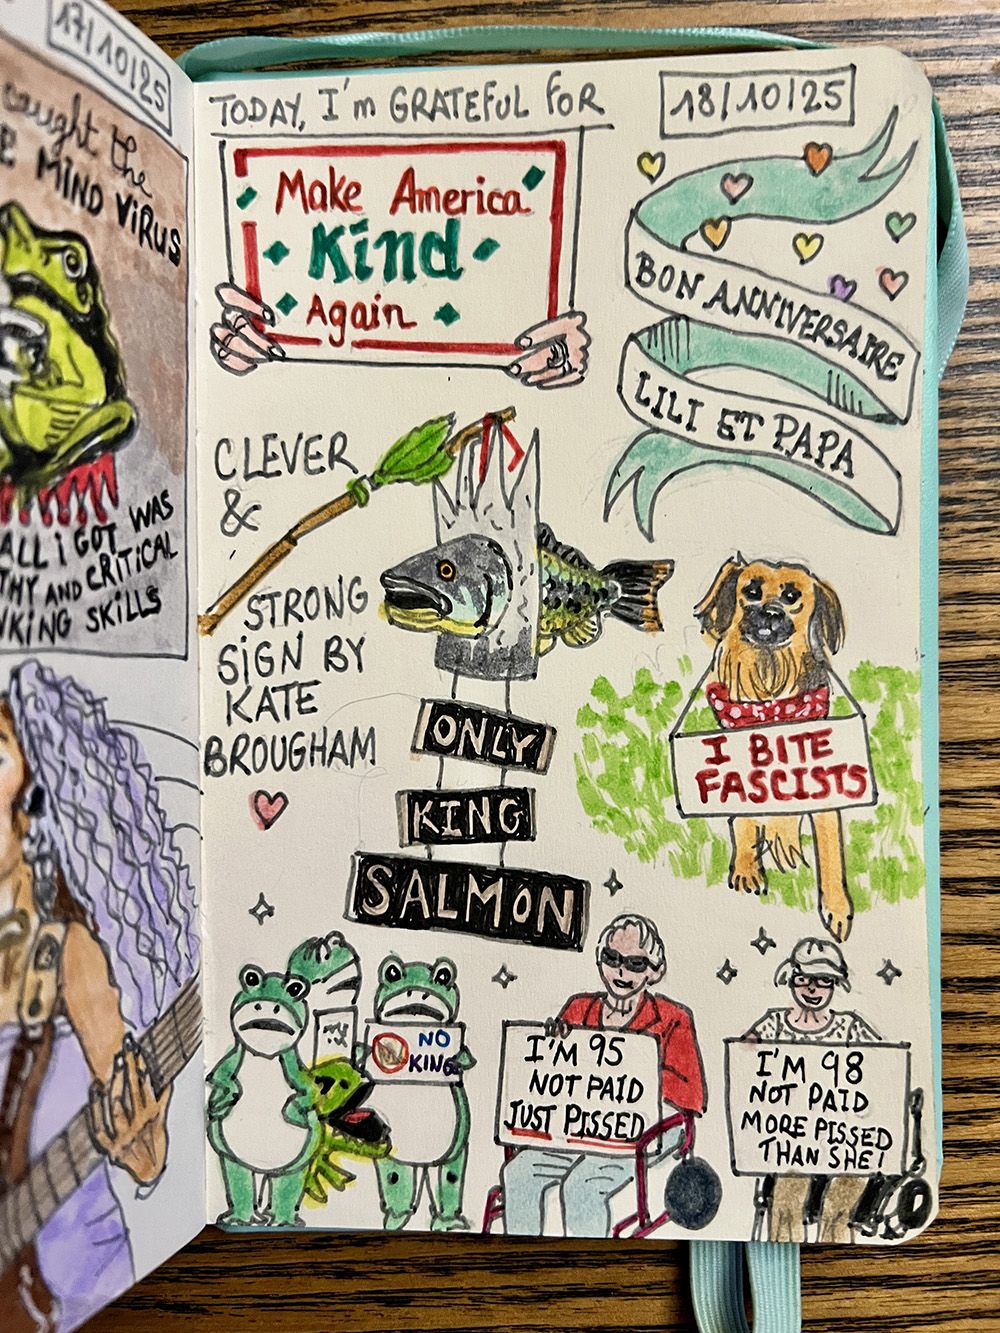 17/10/25
caught the
MIND VIRUS
ALL I GOT WAS
AND CRITICAL
SKILLS
TODAY, I'm GRATEFUL FOR
18/10/25
Make America
Kind
Again
BON ANNIVERSAIRE
LILI ET PAPA
CLEVER
&
STRONG
SIGN BY
KATE
BROUGHAM
ONLY
KING
SALMON
I BITE
FASCISTS
NO
KINGS
I'M 95
NOT PAID
JUST PISSED
I'M 98
NOT PAID
MORE PISSED
THAN SHE!